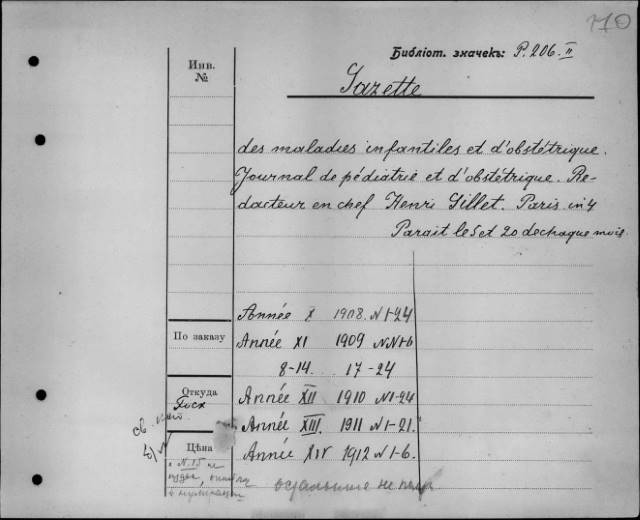 170
Библіот. значекъ: P. 206. II
Инв. №
Gazette
des maladies infantiles et d'obstétrique.
Journal de pédiatrie et d'obstétrique. Re-
dacteur en chef Henri Gillet. Paris in 4
Parait le 5 et 20 de chaque mois.
Année X 1908. N 1-24
По заказу
Année XI 1909 NN 1-6
8-14. 17-24
Откуда
Année XII 1910 N 1-24
Année XIII. 1911 N 1-21.
Цѣна
Année XIV 1912 N 1-6.
N. 15 не
остальные не